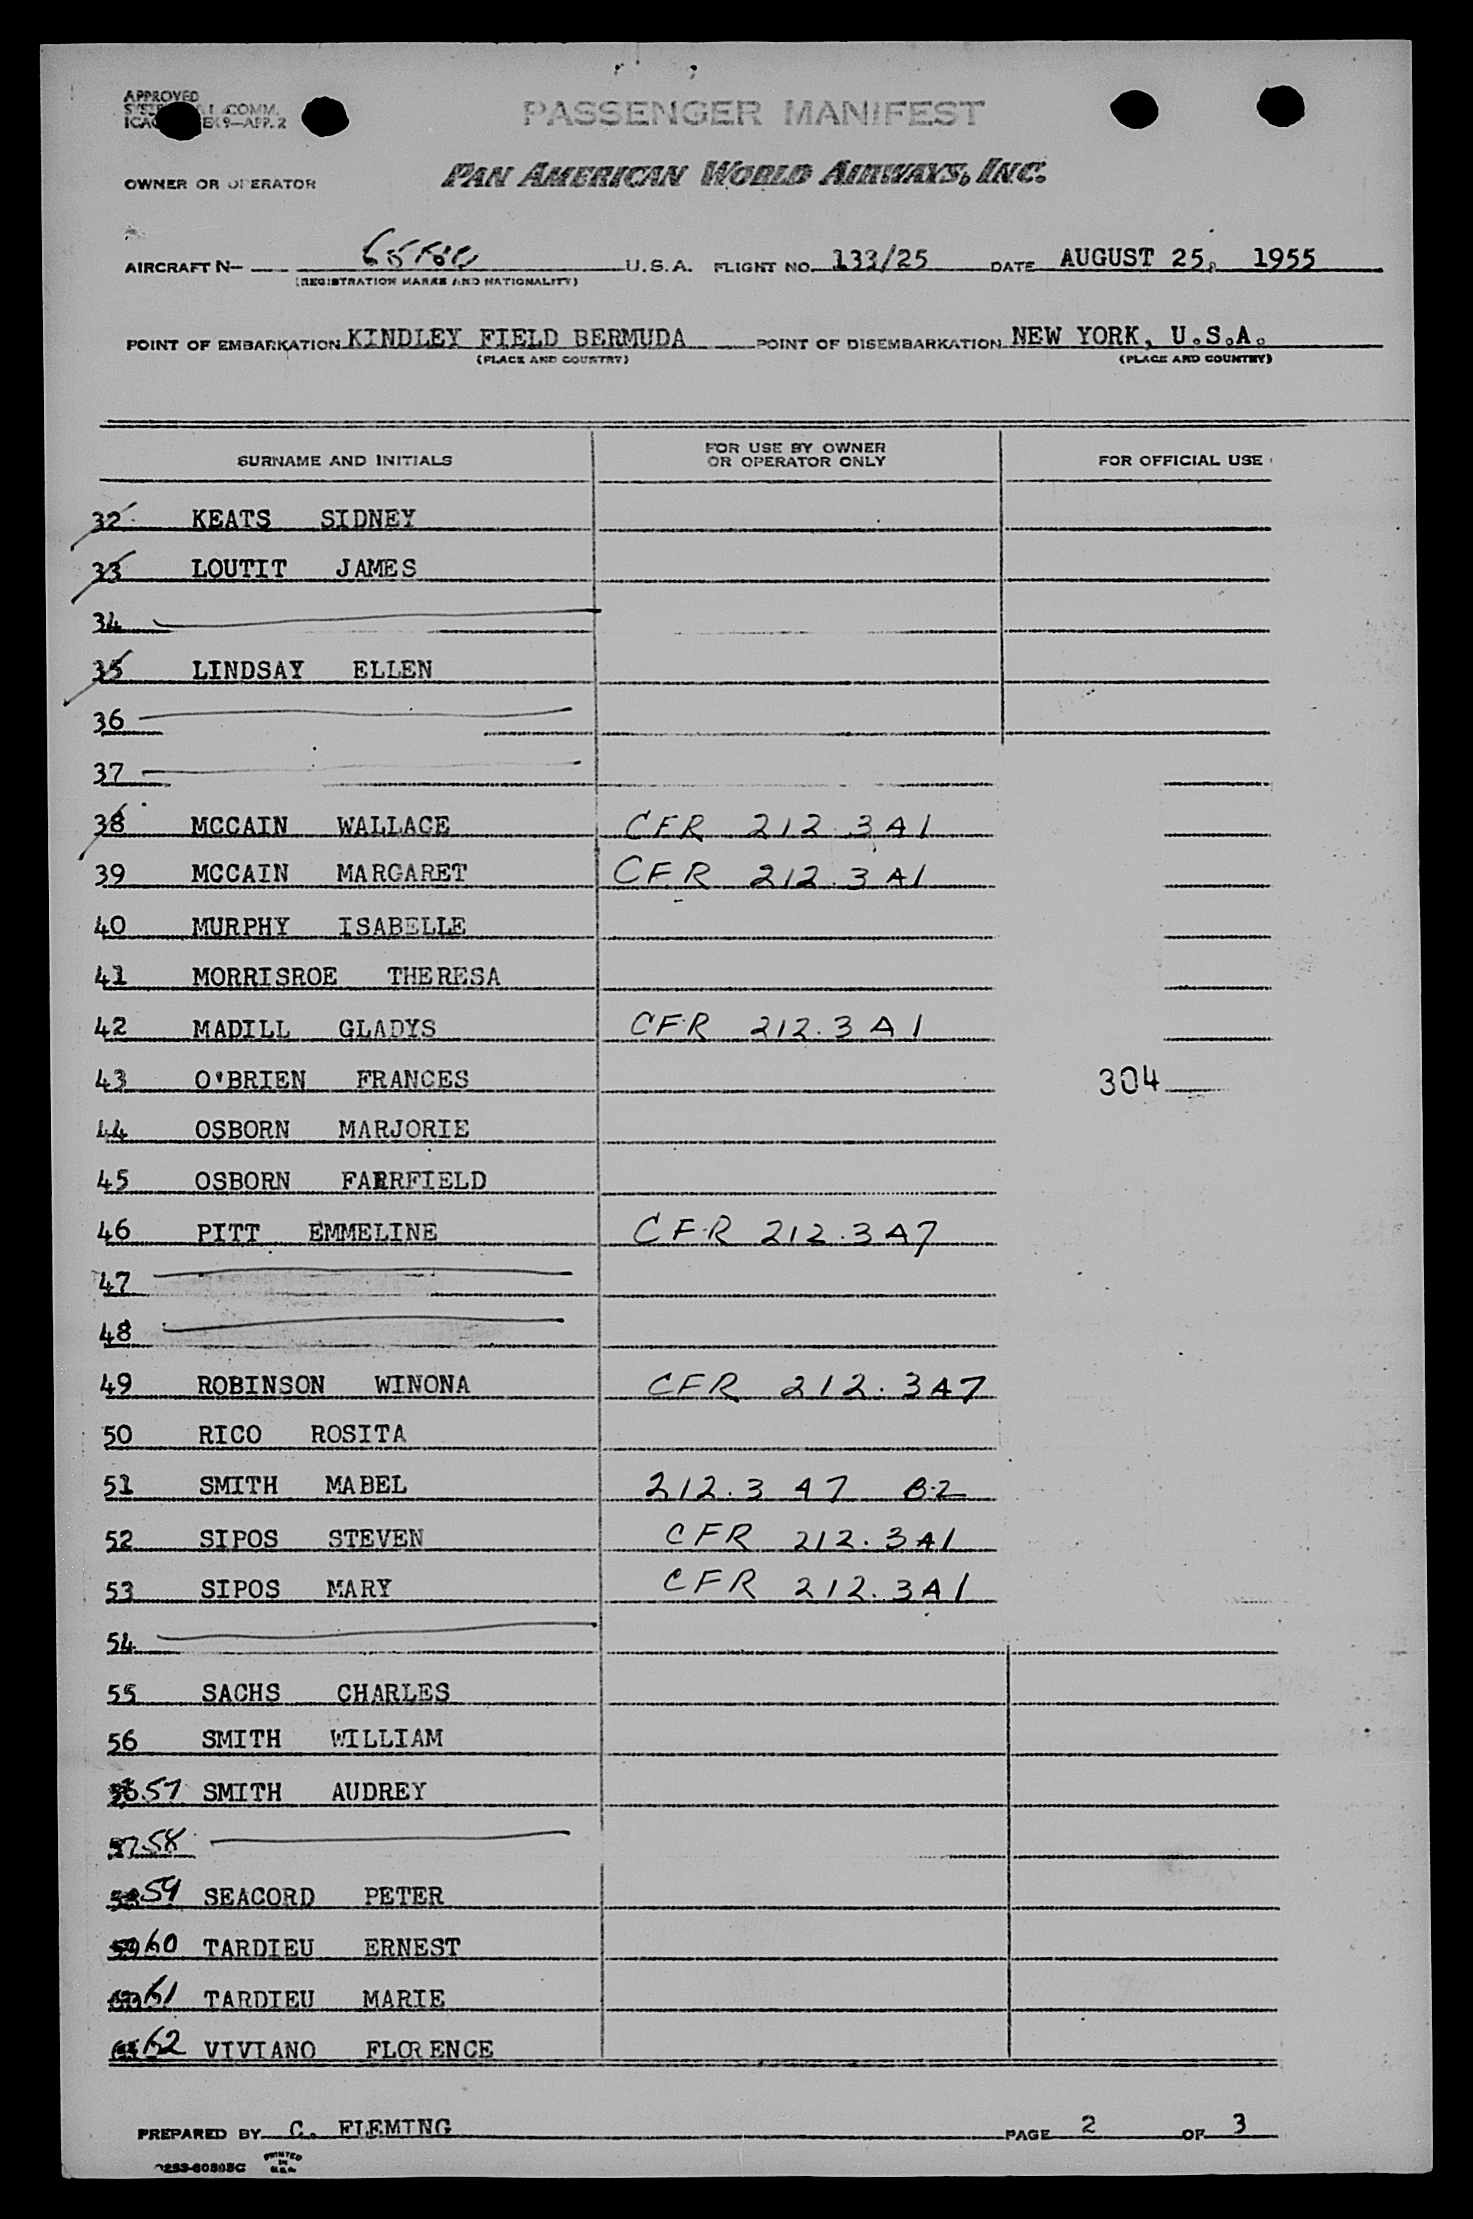 APPROVED
COMM.
9—APP. 2
PASSENGER MANIFEST
OWNER OR OPERATOR PAN AMERICAN WORLD AIRWAYS, INC.
AIRCRAFT N— U.S.A. FLIGHT NO. 133/25 DATE AUGUST 25, 1955
(REGISTRATION MARKS AND NATIONALITY)
POINT OF EMBARKATION KINDLEY FIELD BERMUDA POINT OF DISEMBARKATION NEW YORK, U.S.A.
(PLACE AND COUNTRY) (PLACE AND COUNTRY)
SURNAME AND INITIALS FOR USE BY OWNER OR OPERATOR ONLY FOR OFFICIAL USE
32 KEATS SIDNEY
33 LOUTIT JAMES
34
35 LINDSAY ELLEN
36
37
38 MCCAIN WALLACE CFR 212.3 A1
39 MCCAIN MARGARET CFR 212.3 A1
40 MURPHY ISABELLE
41 MORRISROE THERESA
42 MADILL GLADYS CFR 212.3 A1
43 O'BRIEN FRANCES 304
44 OSBORN MARJORIE
45 OSBORN FAIRFIELD
46 PITT EMMELINE CFR 212.3 A7
47
48
49 ROBINSON WINONA CFR 212.3 A7
50 RICO ROSITA
51 SMITH MABEL 212.3 A7 B-2
52 SIPOS STEVEN CFR 212.3 A1
53 SIPOS MARY CFR 212.3 A1
54
55 SACHS CHARLES
56 SMITH WILLIAM
57 SMITH AUDREY
58
59 SEACORD PETER
60 TARDIEU ERNEST
61 TARDIEU MARIE
62 VIVIANO FLORENCE
PREPARED BY C. FLEMING PAGE 2 OF 3
PRINTED
IN
U.S.A.